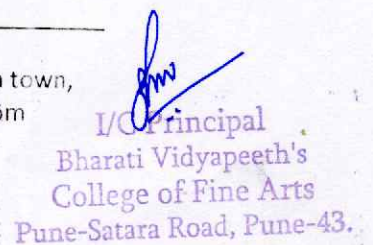 town,
I/C Principal
Bharati Vidyapeeth's
College of Fine Arts
Pune-Satara Road, Pune-43.